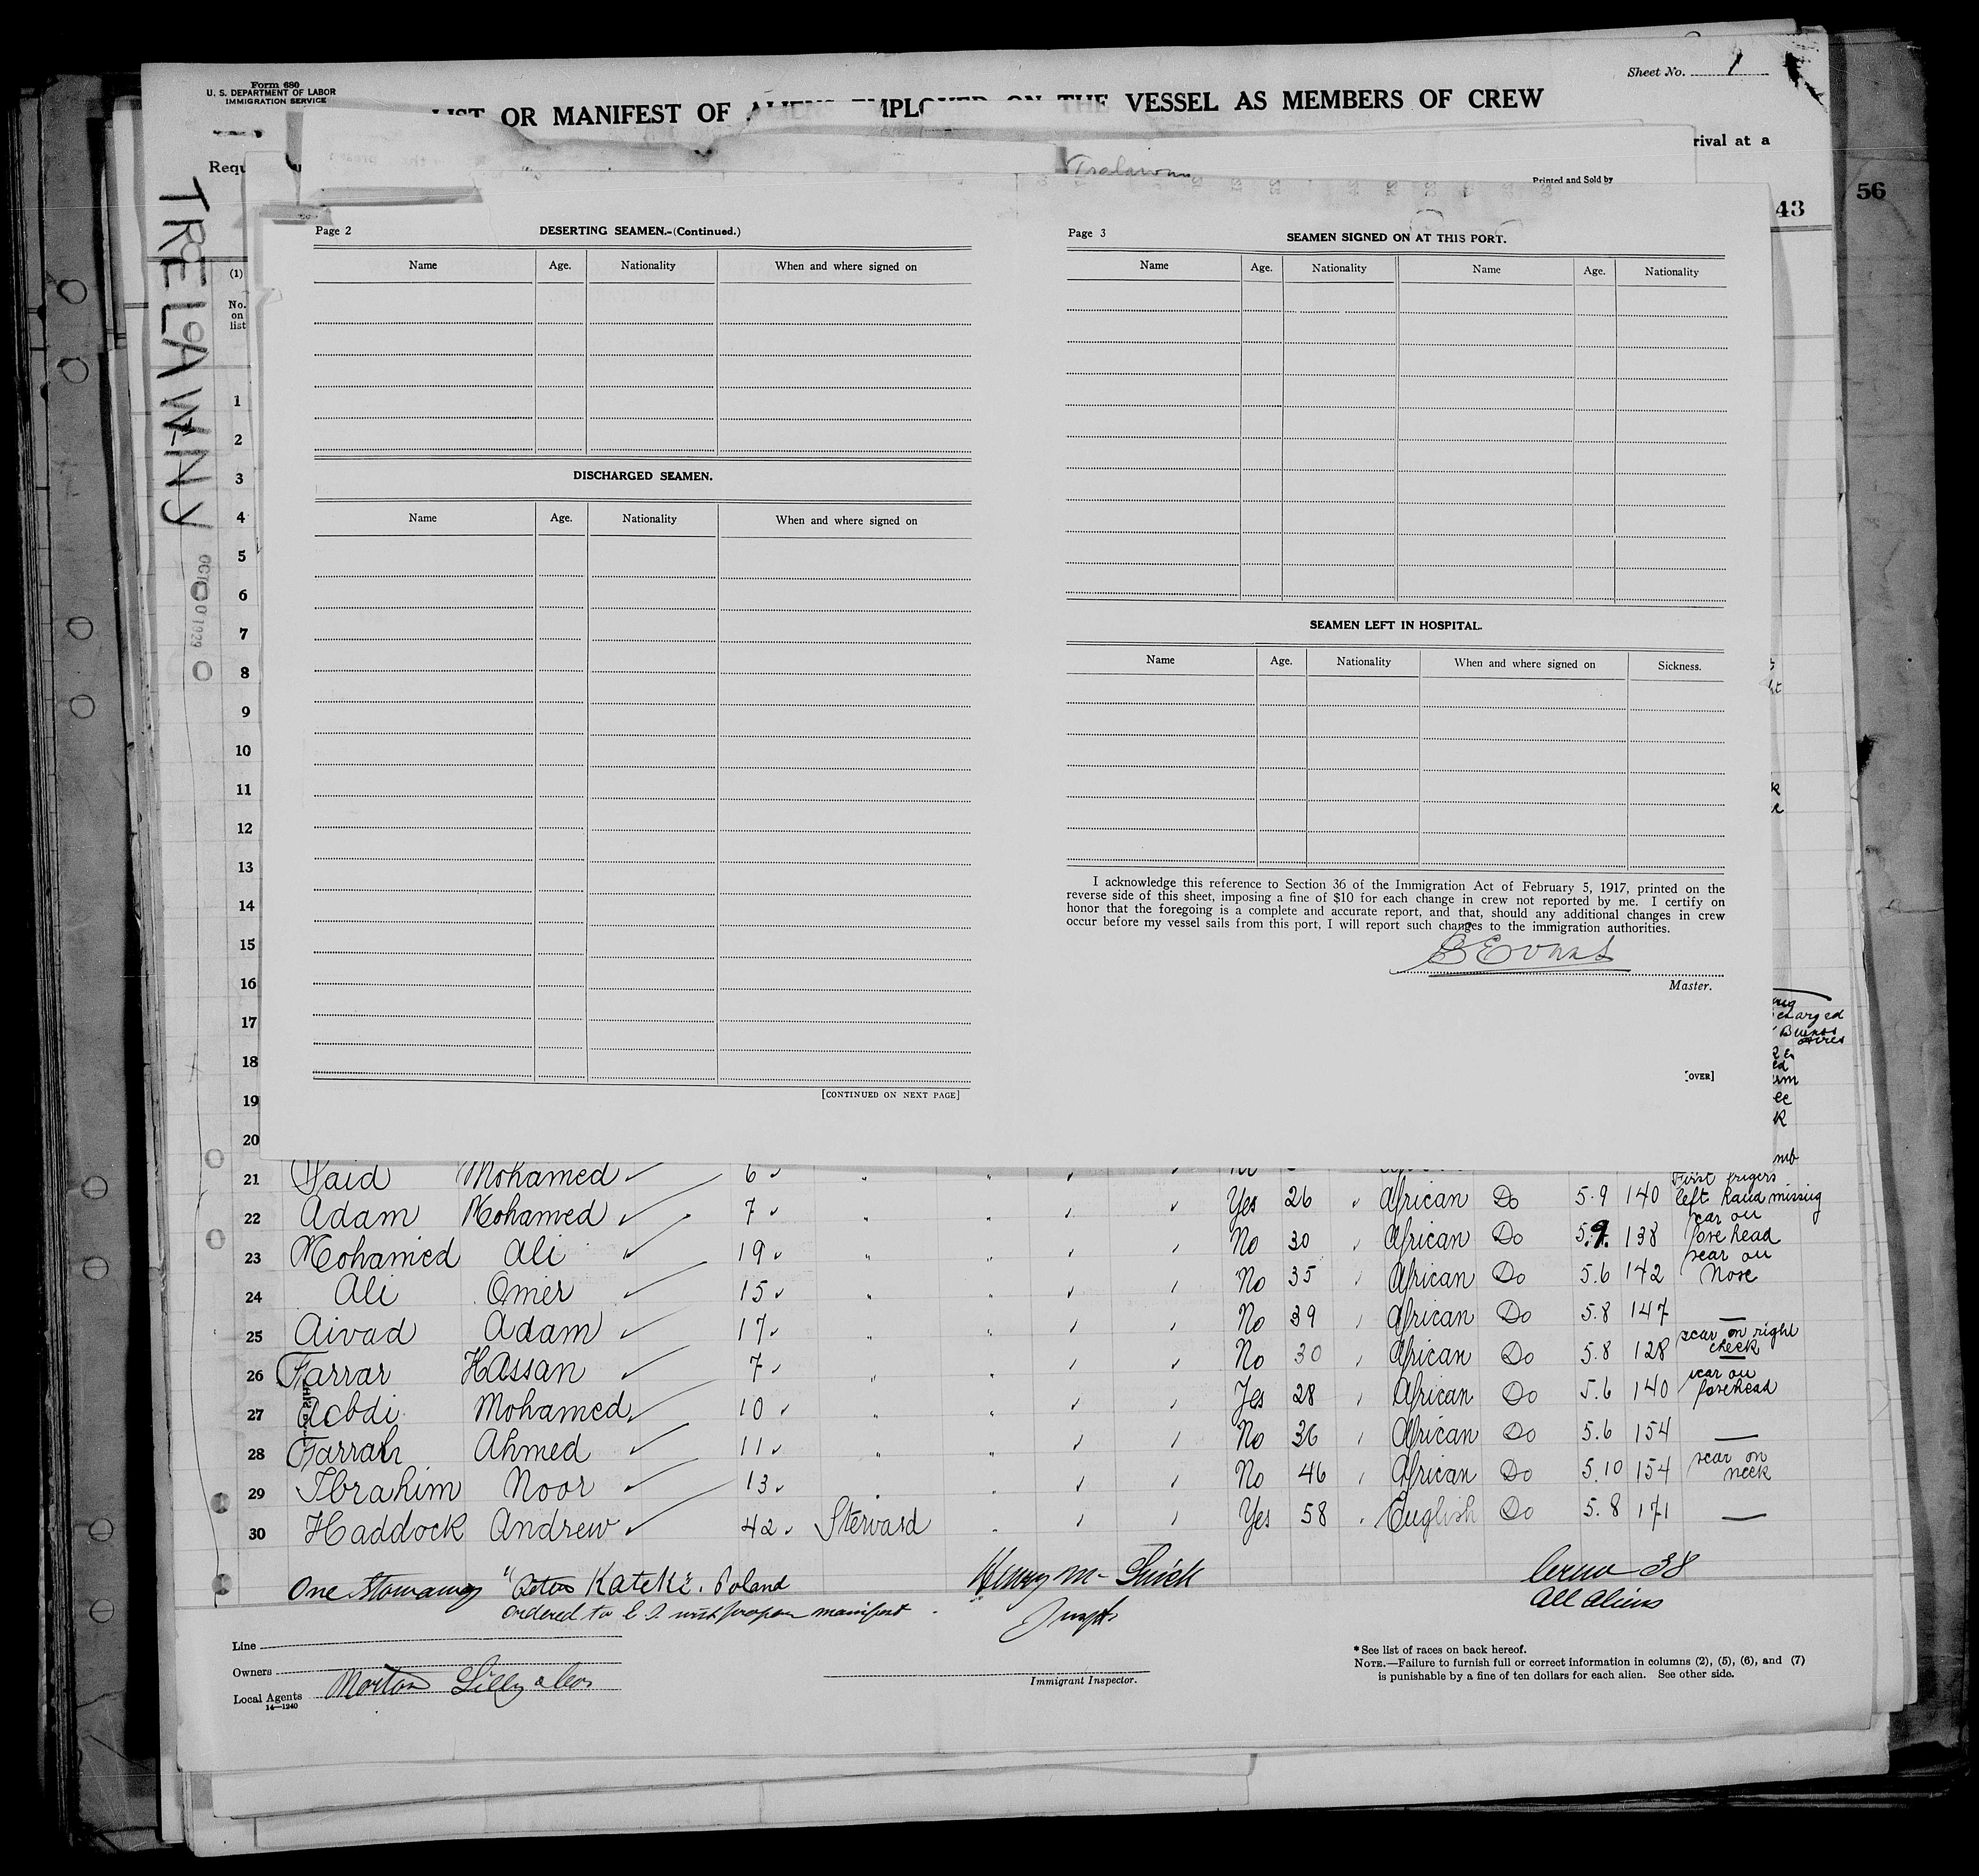 Form 680
U. S. DEPARTMENT OF LABOR
IMMIGRATION SERVICE
Sheet No. 1
LIST OR MANIFEST OF ALIENS EMPLOYED ON THE VESSEL AS MEMBERS OF CREW
rival at a
Requ
Printed and Sold by
56
43
TRELAWNY
OCT 1929
(1)
No. on list
Page 2
DESERTING SEAMEN.-(Continued.)
Name Age. Nationality When and where signed on
DISCHARGED SEAMEN.
Name Age. Nationality When and where signed on
[CONTINUED ON NEXT PAGE]
Page 3
SEAMEN SIGNED ON AT THIS PORT.
Name Age. Nationality Name Age. Nationality
SEAMEN LEFT IN HOSPITAL.
Name Age. Nationality When and where signed on Sickness.
I acknowledge this reference to Section 36 of the Immigration Act of February 5, 1917, printed on the
reverse side of this sheet, imposing a fine of $10 for each change in crew not reported by me. I certify on
honor that the foregoing is a complete and accurate report, and that, should any additional changes in crew
occur before my vessel sails from this port, I will report such changes to the immigration authorities.
Evans
Master.
[OVER]
charged
Buenos
Aires
1
2
3
4
5
6
7
8
9
10
11
12
13
14
15
16
17
18
19
20
21 Said Mohamed 6
22 Adam Mohamed 7 Yes 26 African Do 5.9 140 First fingers left hand missing
23 Mohamed Ali 19 No 30 African Do 5.9. 138 scar on forehead
24 Ali Omer 15 No 35 African Do 5.6 142 scar on Nose
25 Aivad Adam 17 No 39 African Do 5.8 147 —
26 Farrar Hassan 7 No 30 African Do 5.8 128 scar on right cheek
27 Acbdi Mohamed 10 Yes 28 African Do 5.6 140 scar on forehead
28 Farrah Ahmed 11 No 36 African Do 5.6 154 —
29 Ibrahim Noor 13 No 46 African Do 5.10 154 scar on neck
30 Haddock Andrew 42 Steward Yes 58 English Do 5.8 171 —
One Stowaway "Peter Kateki. Poland
ordered to E. I. with proper manifest
Henry M-
Inspt.
Crew 38
All Aliens
Line
Owners
Local Agents Morton Lilly & Co
14—1240
Immigrant Inspector.
* See list of races on back hereof.
NOTE.—Failure to furnish full or correct information in columns (2), (5), (6), and (7)
is punishable by a fine of ten dollars for each alien. See other side.